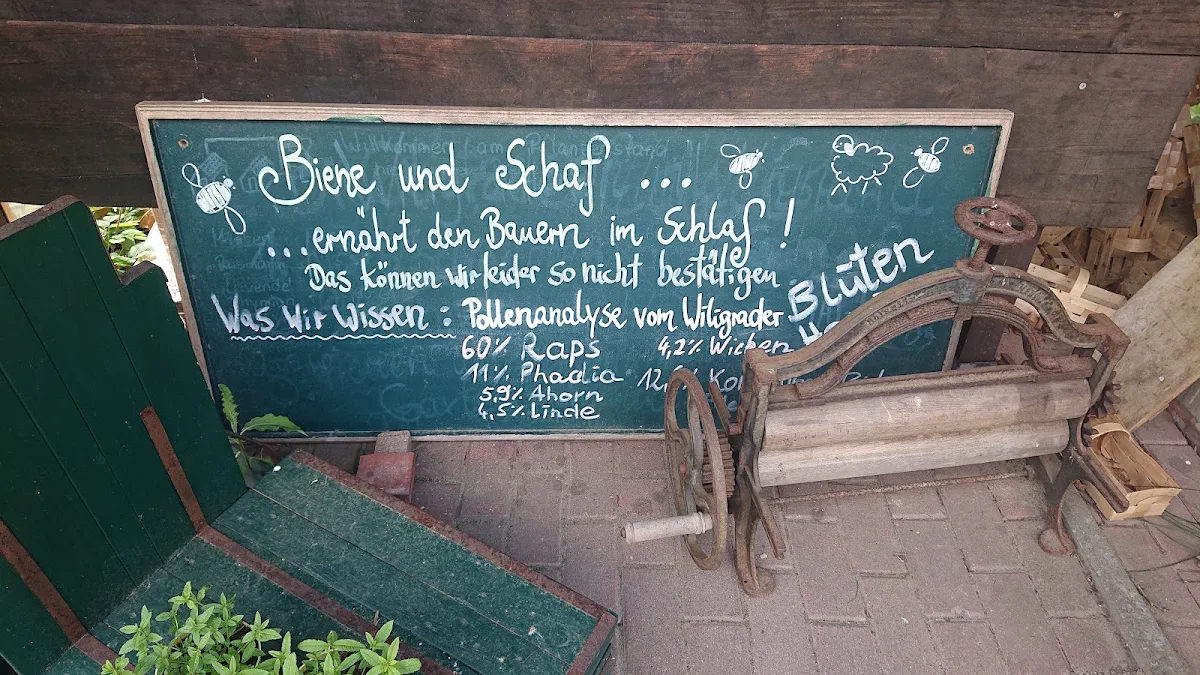 Biene und Schaf ...
...ernährt den Bauern im Schlaf !
Das können wir leider so nicht bestätigen
Was wir wissen : Pollenanalyse vom Wiligrader
Blüten
60% Raps
4,2% Wicken
11% Phadia
5,9% Ahorn
4,5% Linde